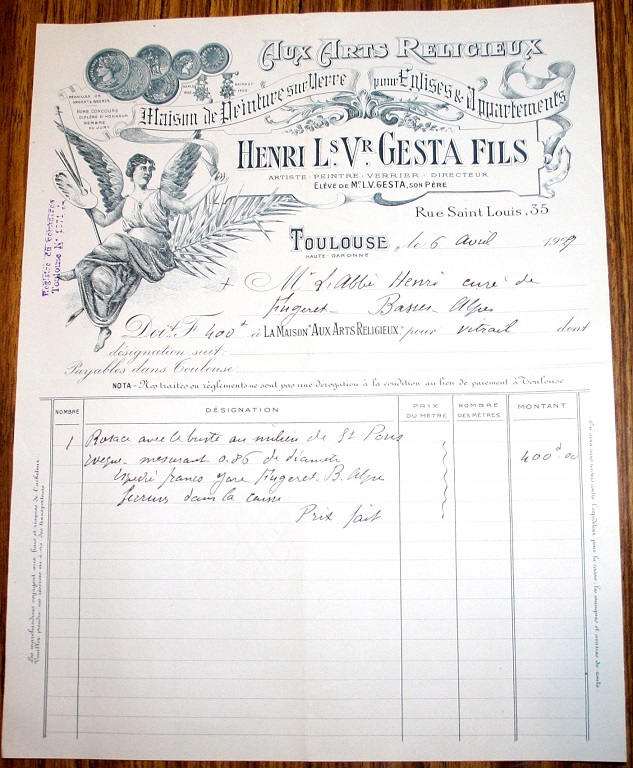 AUX ARTS RELIGIEUX
Maison de Peinture sur Verre pour Églises & Appartements
MÉDAILLES OR
ARGENT & BRONZE
HORS CONCOURS
DIPLÔME D'HONNEUR
MEMBRE
DU JURY
HENRI Ls. Vr. GESTA FILS
ARTISTE - PEINTRE - VERRIER - DIRECTEUR
ELÈVE DE Mr L.V. GESTA, SON PÈRE
Rue Saint Louis, 35
Registre du Commerce
Toulouse N°
TOULOUSE, le 6 avril 1929
HAUTE-GARONNE
+ Mr L'Abbé Henri curé de
Fugeret - Basses-Alpes
Doit F. 400 à LA MAISON "AUX ARTS RELIGIEUX" pour vitrail dont
désignation suit:
Payables dans Toulouse
NOTA - Nos traites ou règlements ne sont pas une dérogation à la condition au lieu de paiement à Toulouse
NOMBRE DÉSIGNATION PRIX DU MÈTRE NOMBRE DES MÈTRES MONTANT
1 Rosace avec le buste au milieu de St Pons
évêque mesurant 0.86 de diamètre 400 00
Expédié franco gare Fugeret B. Alpes
dans la caisse
Prix fait
Les marchandises voyagent aux frais et risques de l'acheteur.